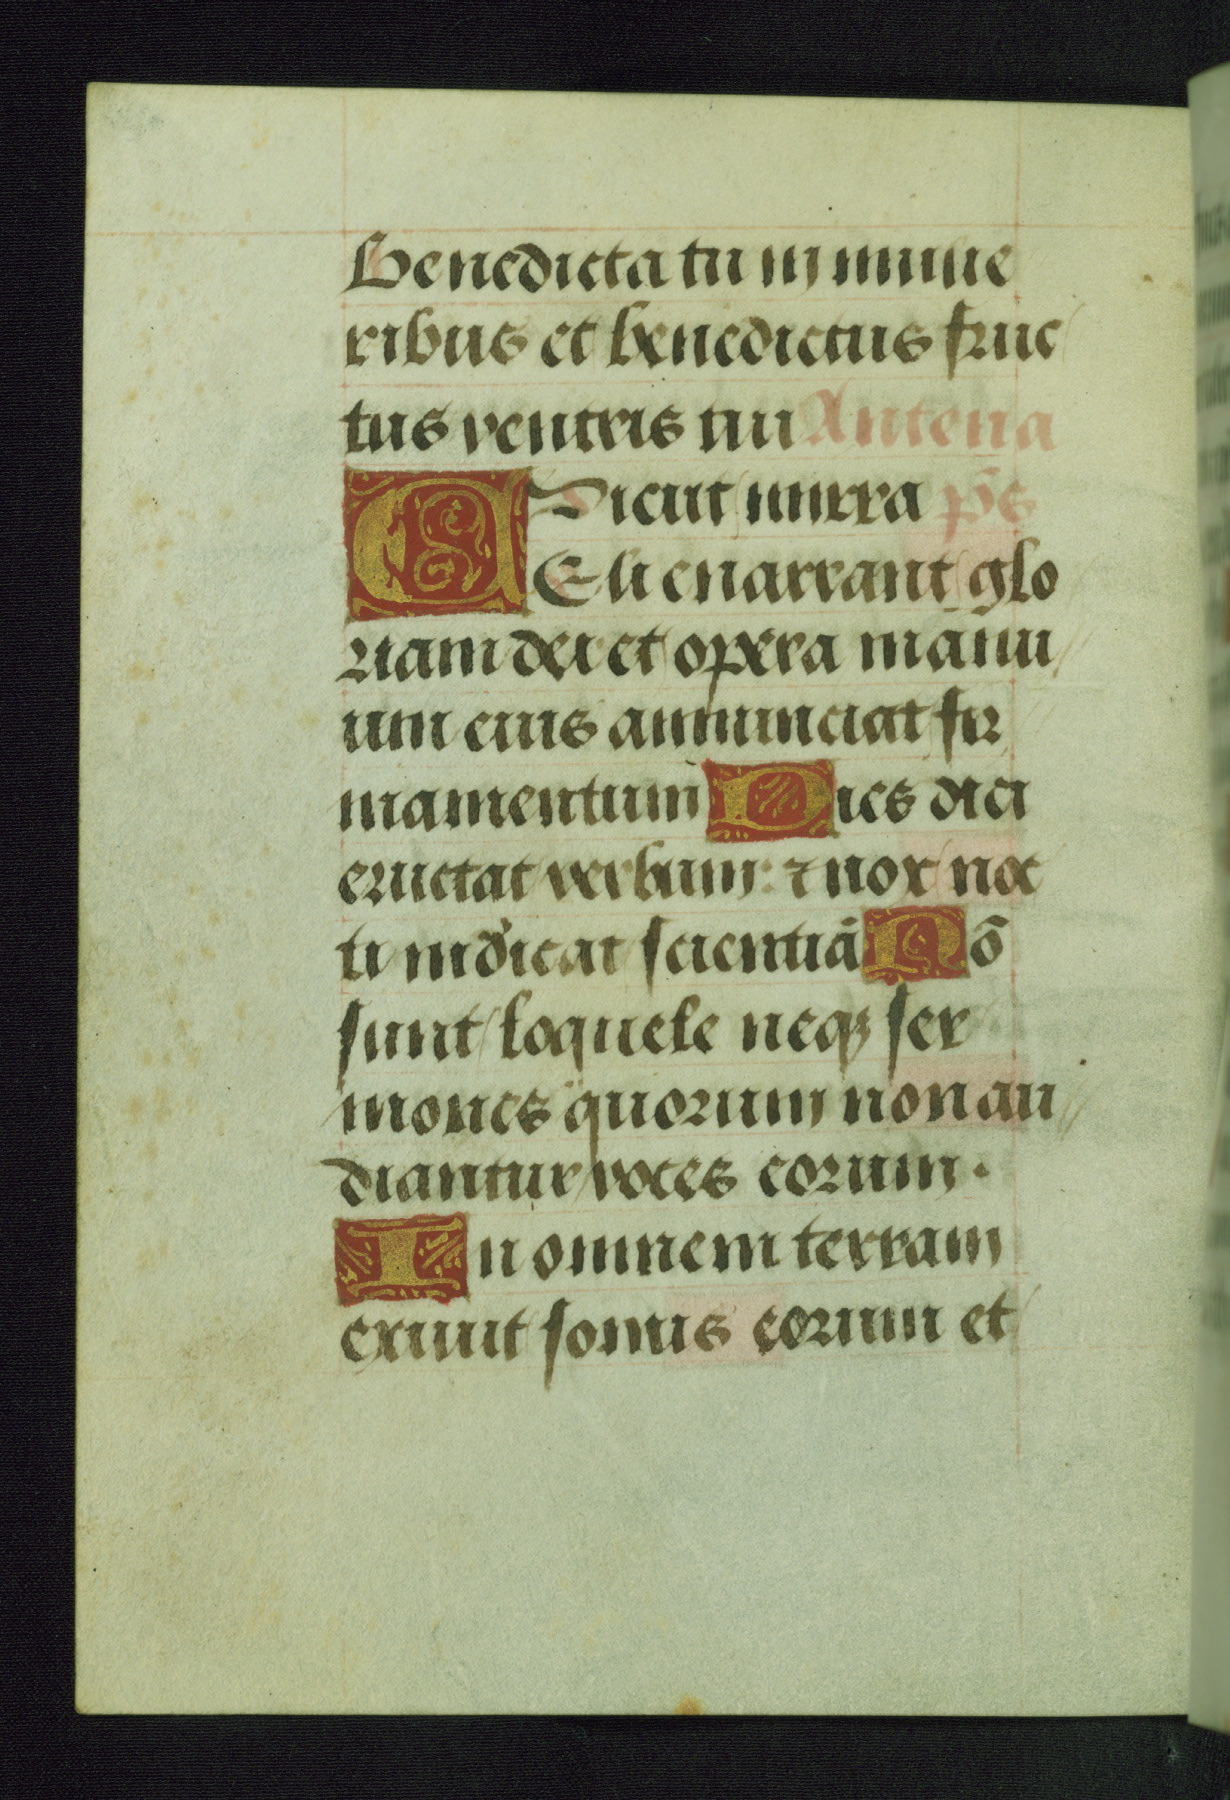 Benedicta tu in mulie
ribus et benedictus fruc
tus ventris tui Antena
Sicut mirra ps̄
CEli enarrant glo
riam dei et opera manu
um eius annunciat fir
mamentum Dies diei
eructat verbum: ⁊ nox noc
ti indicat scientiā Nō
sunt loquele neqꝫ ser
mones quorum non au
diantur voces eorum.
In omnem terram
exiuit sonus eorum et